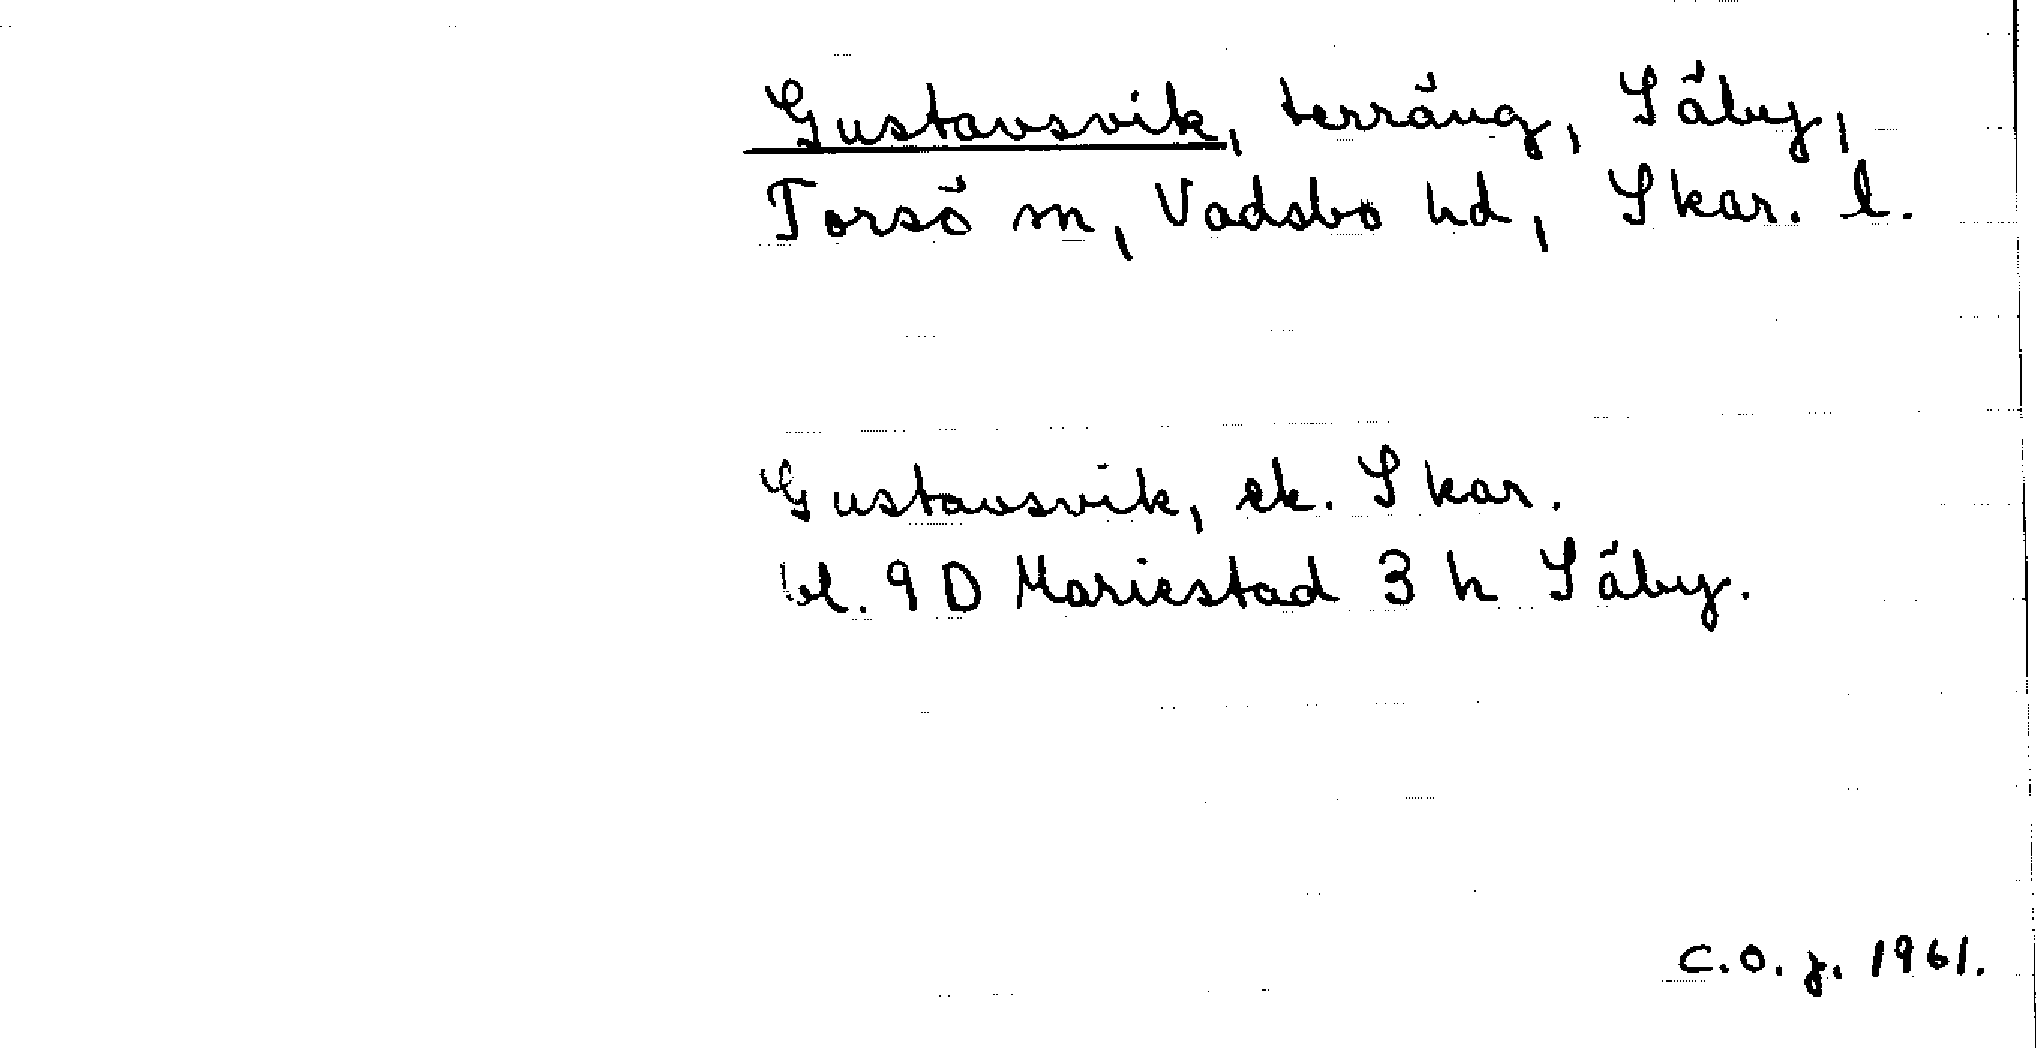 Gustavsvik, terräng, Säby,
Torsö sn, Vadsbo hd, Skar. l.
Gustavsvik, ek. Skar.
bl. 9 D Mariestad 3 h Säby.
C.O.J. 1961.